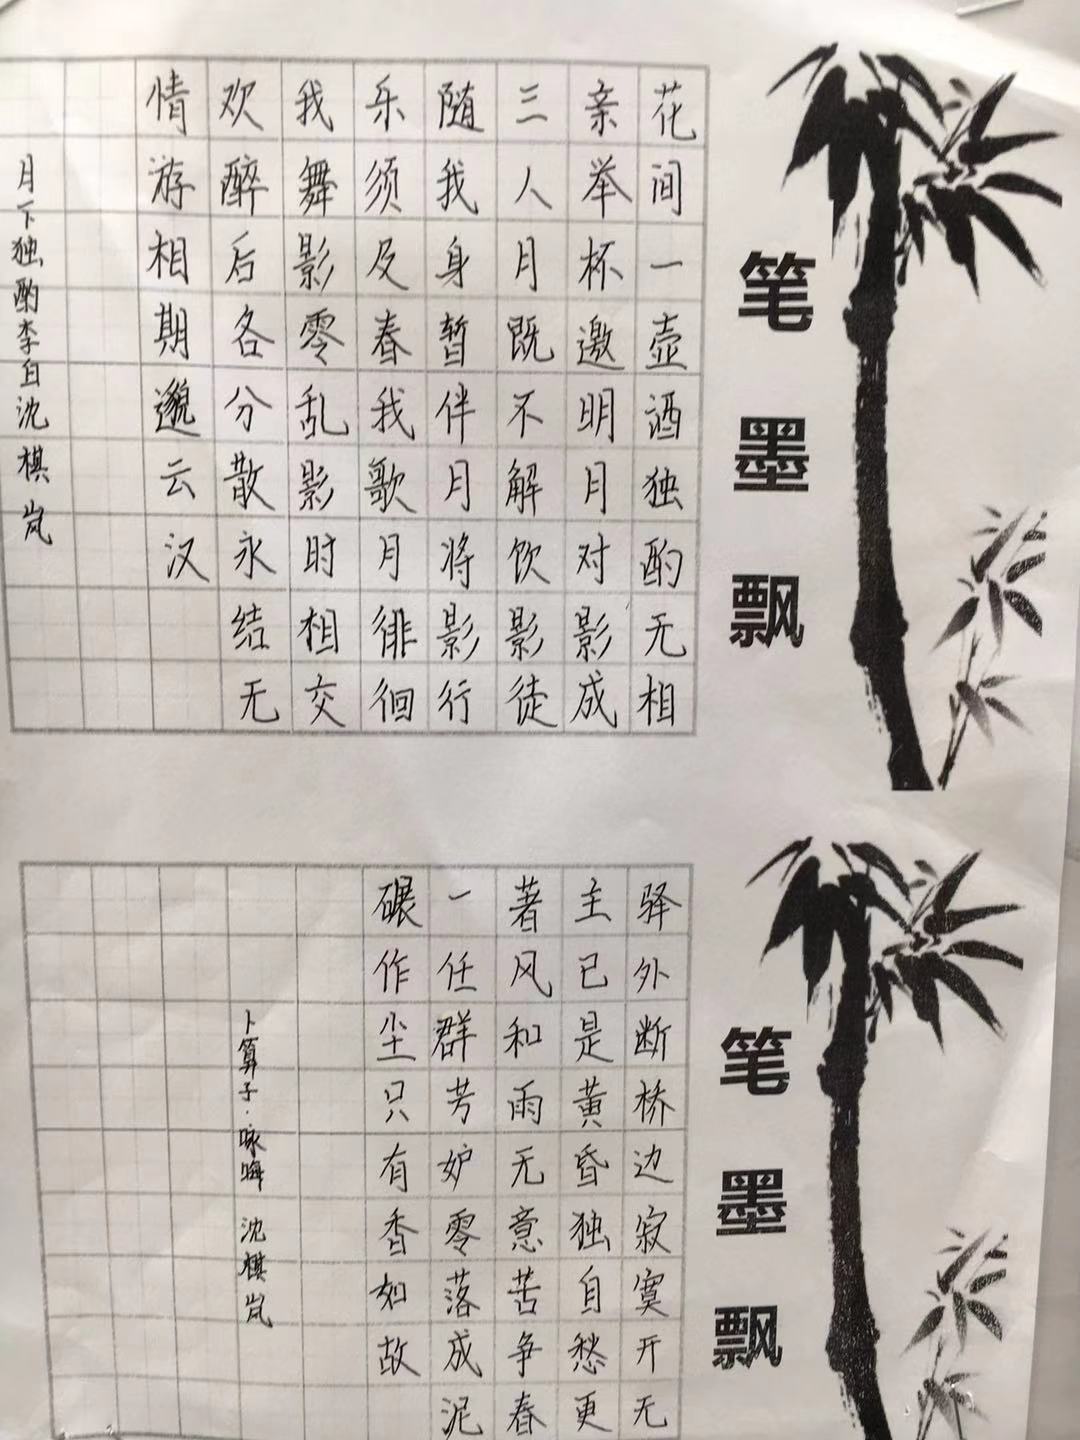 笔墨飘
花间一壶酒独酌无相
亲举杯邀明月对影成
三人月既不解饮影徒
随我身暂伴月将影行
乐须及春我歌月徘徊
我舞影零乱影时相交
欢醉后各分散永结无
情游相期邈云汉
月下独酌李白沈棋岚
笔墨飘
驿外断桥边寂寞开无
主已是黄昏独自愁更
著风和雨无意苦争春
一任群芳妒零落成泥
碾作尘只有香如故
卜算子·咏梅 沈棋岚